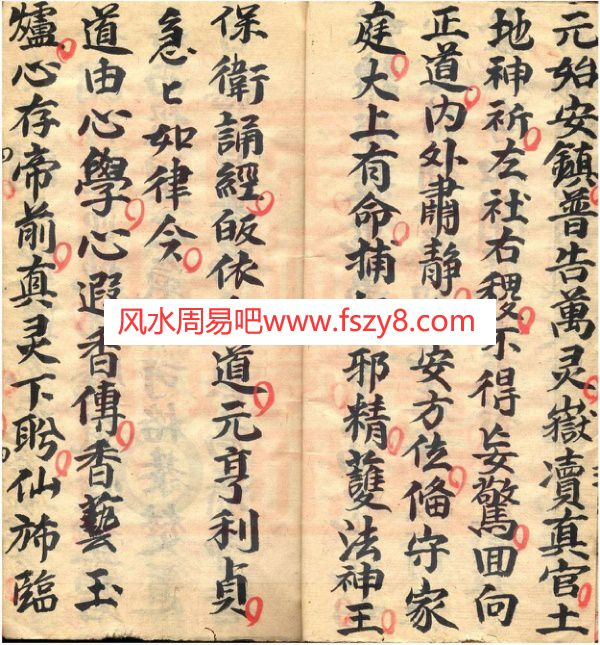 元始安鎮普告萬灵嶽瀆真官土
地神祈左社右稷不得妄驚回向
正道内外肅静安方位俻守家
庭大上有命捕邪精護法神王
保衛誦經皈依道元亨利貞
急匕如律今
道由心學心遐香傳香藝玉
爐心存帝前真灵下盻仙斾臨
风水周易吧www.fszy8.com